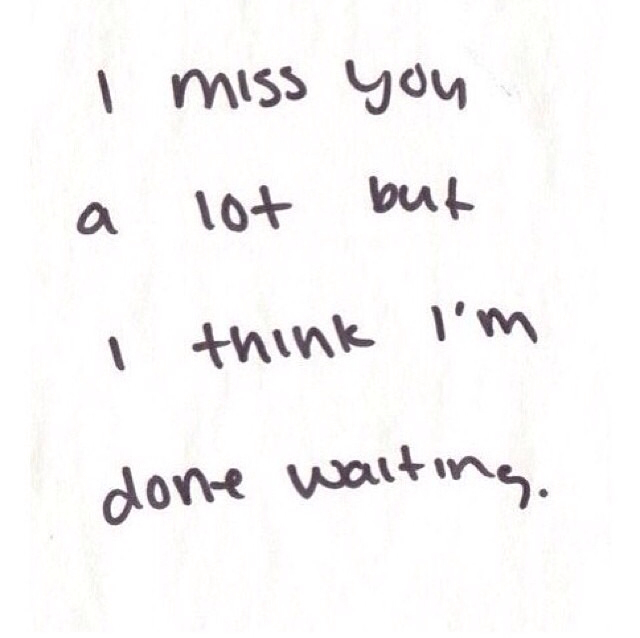 I miss you
a lot but
I think I'm
done waiting.